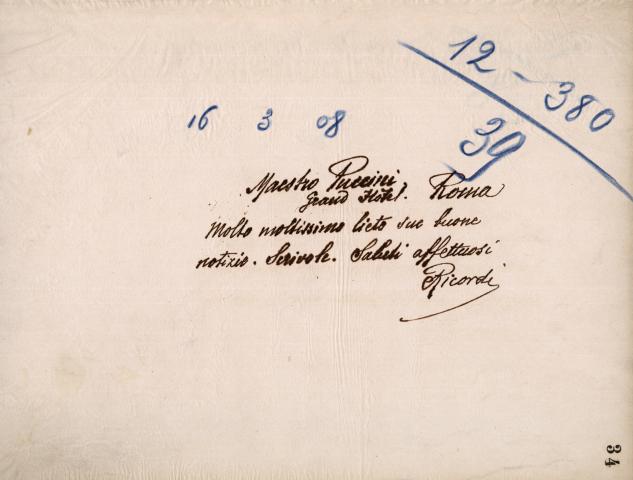 12 - 380
16 3 08
39
Maestro Puccini
Grand Hôtel. Roma
Molto moltissimo lieto sue buone
notizie. Scrivole. Saluti affettuosi
Ricordi
34